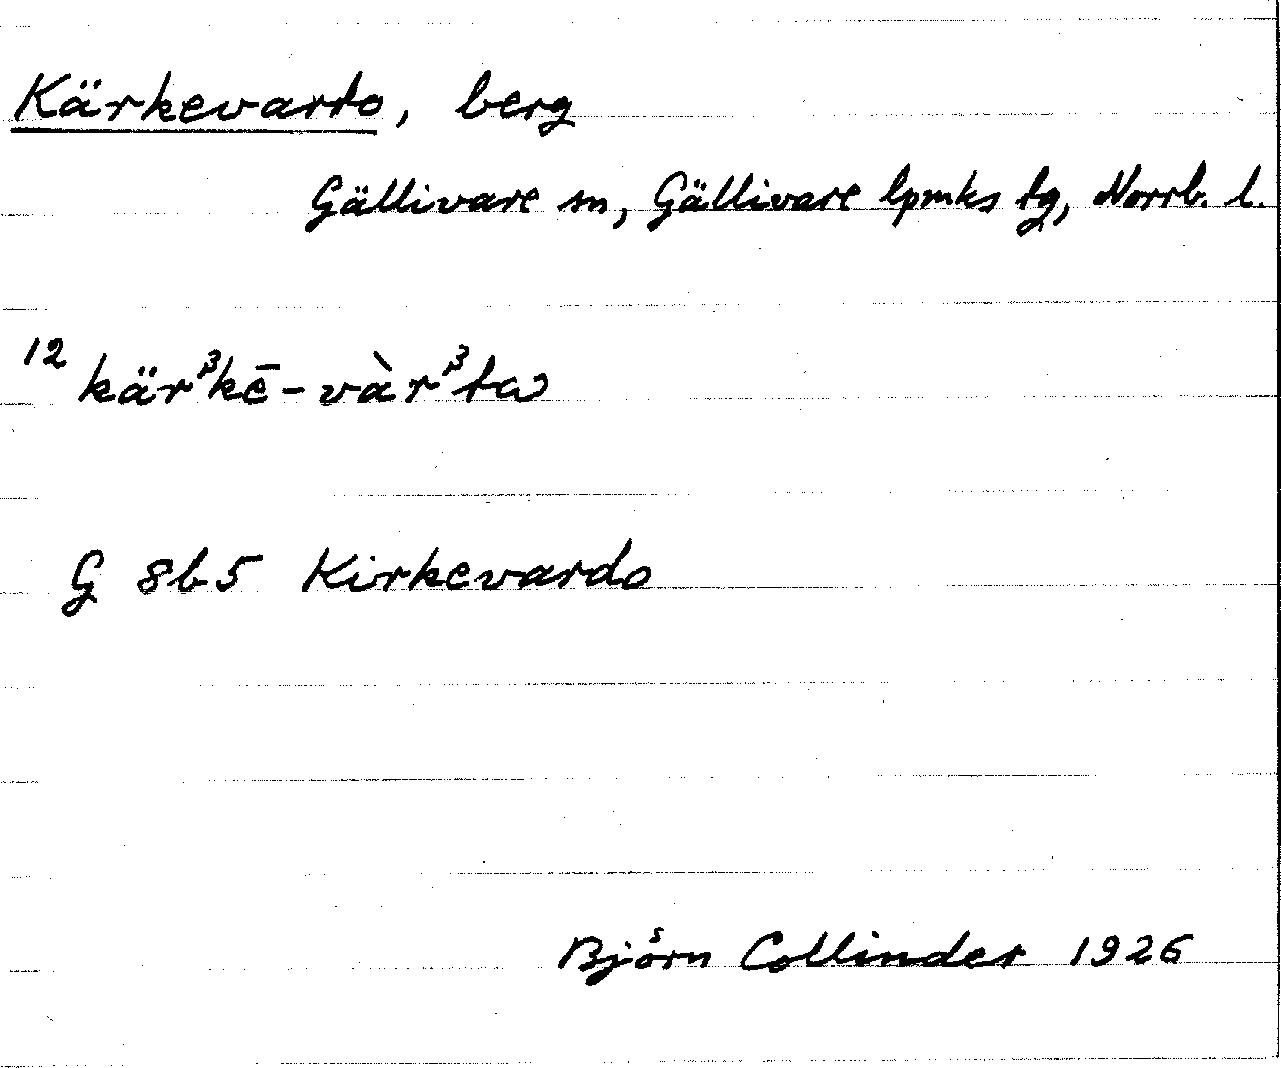 Kärkevarto, berg
Gällivare sn, Gällivare lpmks tg, Norrb. l.
¹² kärᵌkē-vàrᵌtω
G 8b5 Kirkevardo
Björn Collinder 1926